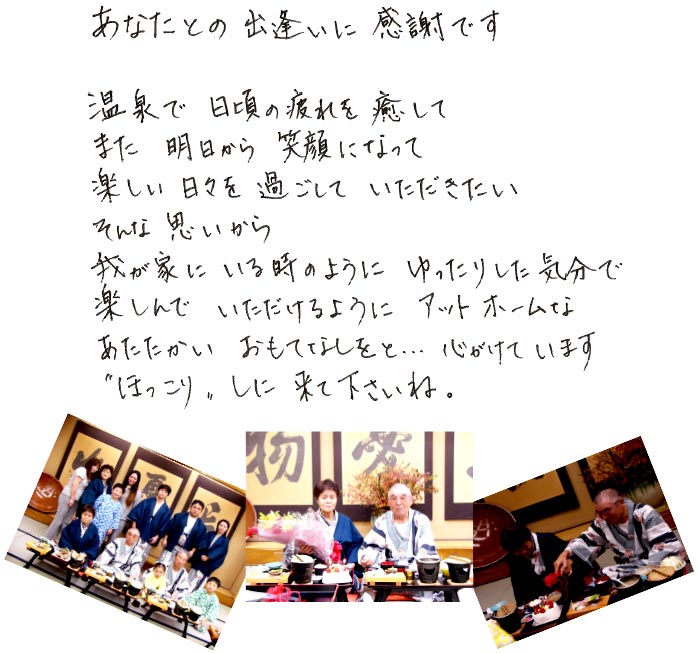 あなたとの 出逢いに 感謝です
温泉で 日頃の疲れを 癒して
また 明日から 笑顔になって
楽しい 日々を 過ごして いただきたい
そんな 思いから
我が家に いる時のように ゆったりした 気分で
楽しんで いただけるように アットホームな
あたたかい おもてなしをと… 心がけています
〝ほっこり〟しに 来て下さいね。
物 愛